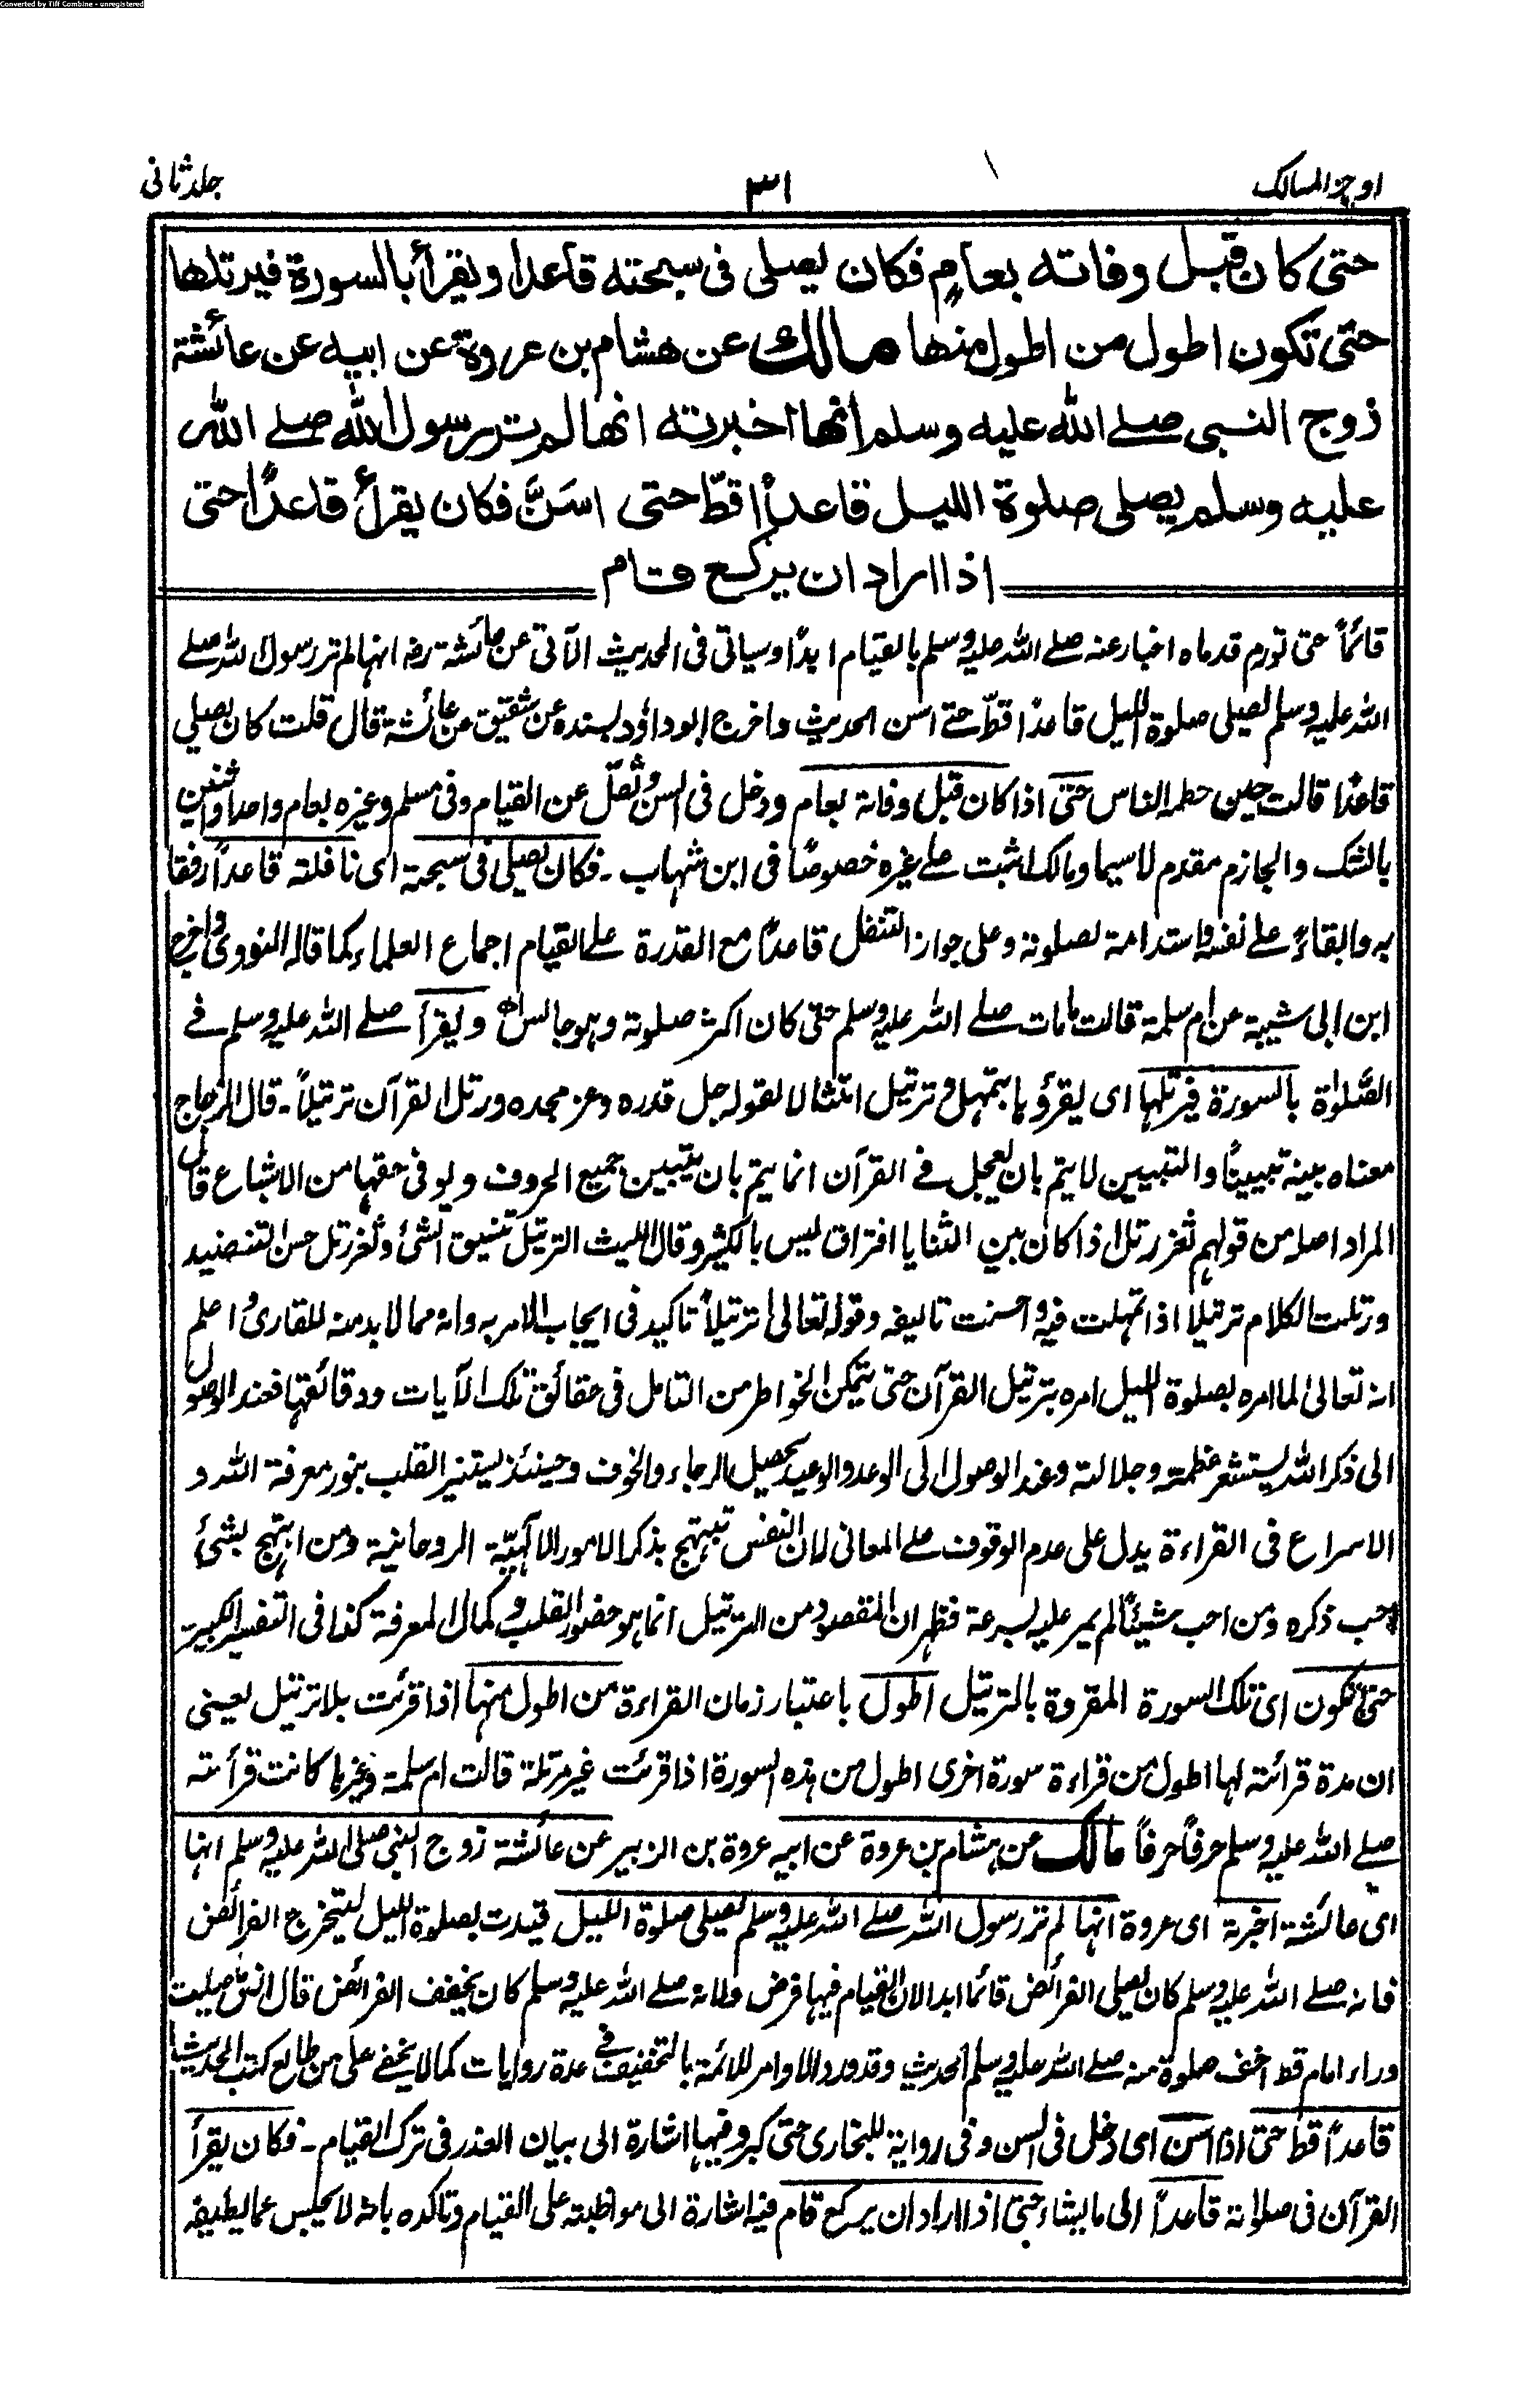 Converted by Tiff Combine - unregistered
اوجز المسالك
٣١
جلد ثانی
حتى كان قبل وفاته بعامٍ فكان يصلى فى سبحته قاعدا ويقرأ بالسورة فيرتلها
حتى تكون اطول من اطول منها مالك عن هشام بن عروة عن ابيه عن عائشة
زوج النبى صلے الله عليه وسلم انها اخبرته انها لم تر رسول الله صلے الله
عليه وسلم يصلى صلوة الليل قاعداً قطّ حتى اسَنَّ فكان يقرأ قاعداً حتى
اذا اراد ان يركع قام
قائماً حتى تورم قدماه اخبار عنه صلے الله عليه وسلم بالقيام ابداً وسياتى فى الحديث الآتى عن عائشة رضـ انها لم تر رسول الله صلے
الله عليه وسلم يصلى صلوة الليل قاعداً قطّ حتے اسن الحديث واخرج ابوداؤد بسنده عن شقيق عن عائشة قال قلت كان يصلي
قاعداً قالت حين حطمه الناس حتى اذا كان قبل وفاته بعام ودخل فى السن وثقل عن القيام وفى مسلم وغيره بعام واحد او اثنين
بالشك والجازم مقدم لاسيما ومالك اثبت علے غيره خصوصاً فى ابن شهاب ۔ فكان يصلى فى سبحته اى نافلته قاعداً رفقا
به وابقاءً علے نفسه واستدامة لصلوته وعلى جواز التنفل قاعداً مع القدرة علے القيام اجماع العلماء كما قاله النووى واخرج
ابن ابى شيبة عن ام سلمة قالت مامات صلے الله عليه وسلم حتى كان اكثر صلوته وهو جالس اھ ويقرأ صلے الله عليه وسلم فے
الصّلوٰة بالسورة فيرتلها اى يقرؤ ها بتمهل وترتيل امتثالا لقوله جل قدره وعز مجده ورتل القرآن ترتيلاً ۔ قال الزجاج
معناه بينه تبييناً والتبيين لا يتم بان يعجل فے القرآن انما يتم بان يتبين جميع الحروف ويوفى حقها من الاشباع قال
المراد اصله من قولهم ثغر رتل اذا كان بين الثنايا افتراق ليس بالكثير وقال الليث الترتيل تنسيق الشئ وثغر رتل حسن التنضيد
ورتلت الكلام ترتيلا اذا تمهلت فيه واحسنت تاليفه وقوله تعالى ترتيلاً تاكيد فى ايجاب الامر به وانه مما لا بد منه للقارئ واعلم
انه تعالى لما امره بصلوة الليل امره بترتيل القرآن حتى يتمكن الخواطر من التامل فى حقائق تلك الآيات ودقائقها فعند الوصول
الى ذكر الله يستشعر عظمته وجلالته وعند الوصول الى الوعد والوعيد يحصل الرجاء والخوف وحينئذ يستنير القلب بنور معرفة الله و
الاسراع فى القراءة يدل على عدم الوقوف علے المعانى لان النفس تبتهج بذكر الامور الآلهيّة الروحانية ومن ابتهج بشئ
احب ذكره ومن احب شيئاً لم يمر عليه بسرعة فظهر ان المقصود من الترتيل انما هو حضور القلب وكمال المعرفة كذا فى التفسير الكبير
حتى تكون اى تلك السورة المقروة بالترتيل اطول باعتبار زمان القراءة من اطول منها اذا قرئت بلا ترتيل يعنى
ان مدة قرائته لها اطول من قراءة سورة اخرى اطول من هذه السورة اذا قرئت غير مرتلة قالت ام سلمة وغيرها كانت قرأته
صلے الله عليه وسلم حرفاً حرفاً مالك عن هشام بن عروة عن ابيه عروة بن الزبير عن عائشة زوج النبى صلى الله عليه وسلم انها
اى عائشة اخبرته اى عروة انها لم تر رسول الله صلے الله عليه وسلم يصلى صلوة الليل قيدت بصلوة الليل ليتخرج الفرائض
فانه صلے الله عليه وسلم كان يصلى الفرائض قائما ابدا لان القيام فيها فرض ولانه صلے الله عليه وسلم كان يخفف الفرائض قال انسؓ ما صليت
وراء امام قط اخف صلوة منه صلے الله عليه وسلم الحديث وقد ورد الاوامر للائمة بالتخفيف فے عدة روايات كما لا يخفے على من طالع كتب الحديث
قاعداً قط حتى اذا اسن اى دخل فى السن وفى رواية للبخارى حتى كبر وفيها اشارة الى بيان العذر فى ترك القيام ۔ فكان يقرأ
القرآن فى صلاته قاعداً الى ما يشاء حتى اذا اراد ان يركع قام فيه اشارة الى مواظبته على القيام وتاكده بانه لا يجلس عما يطيقه